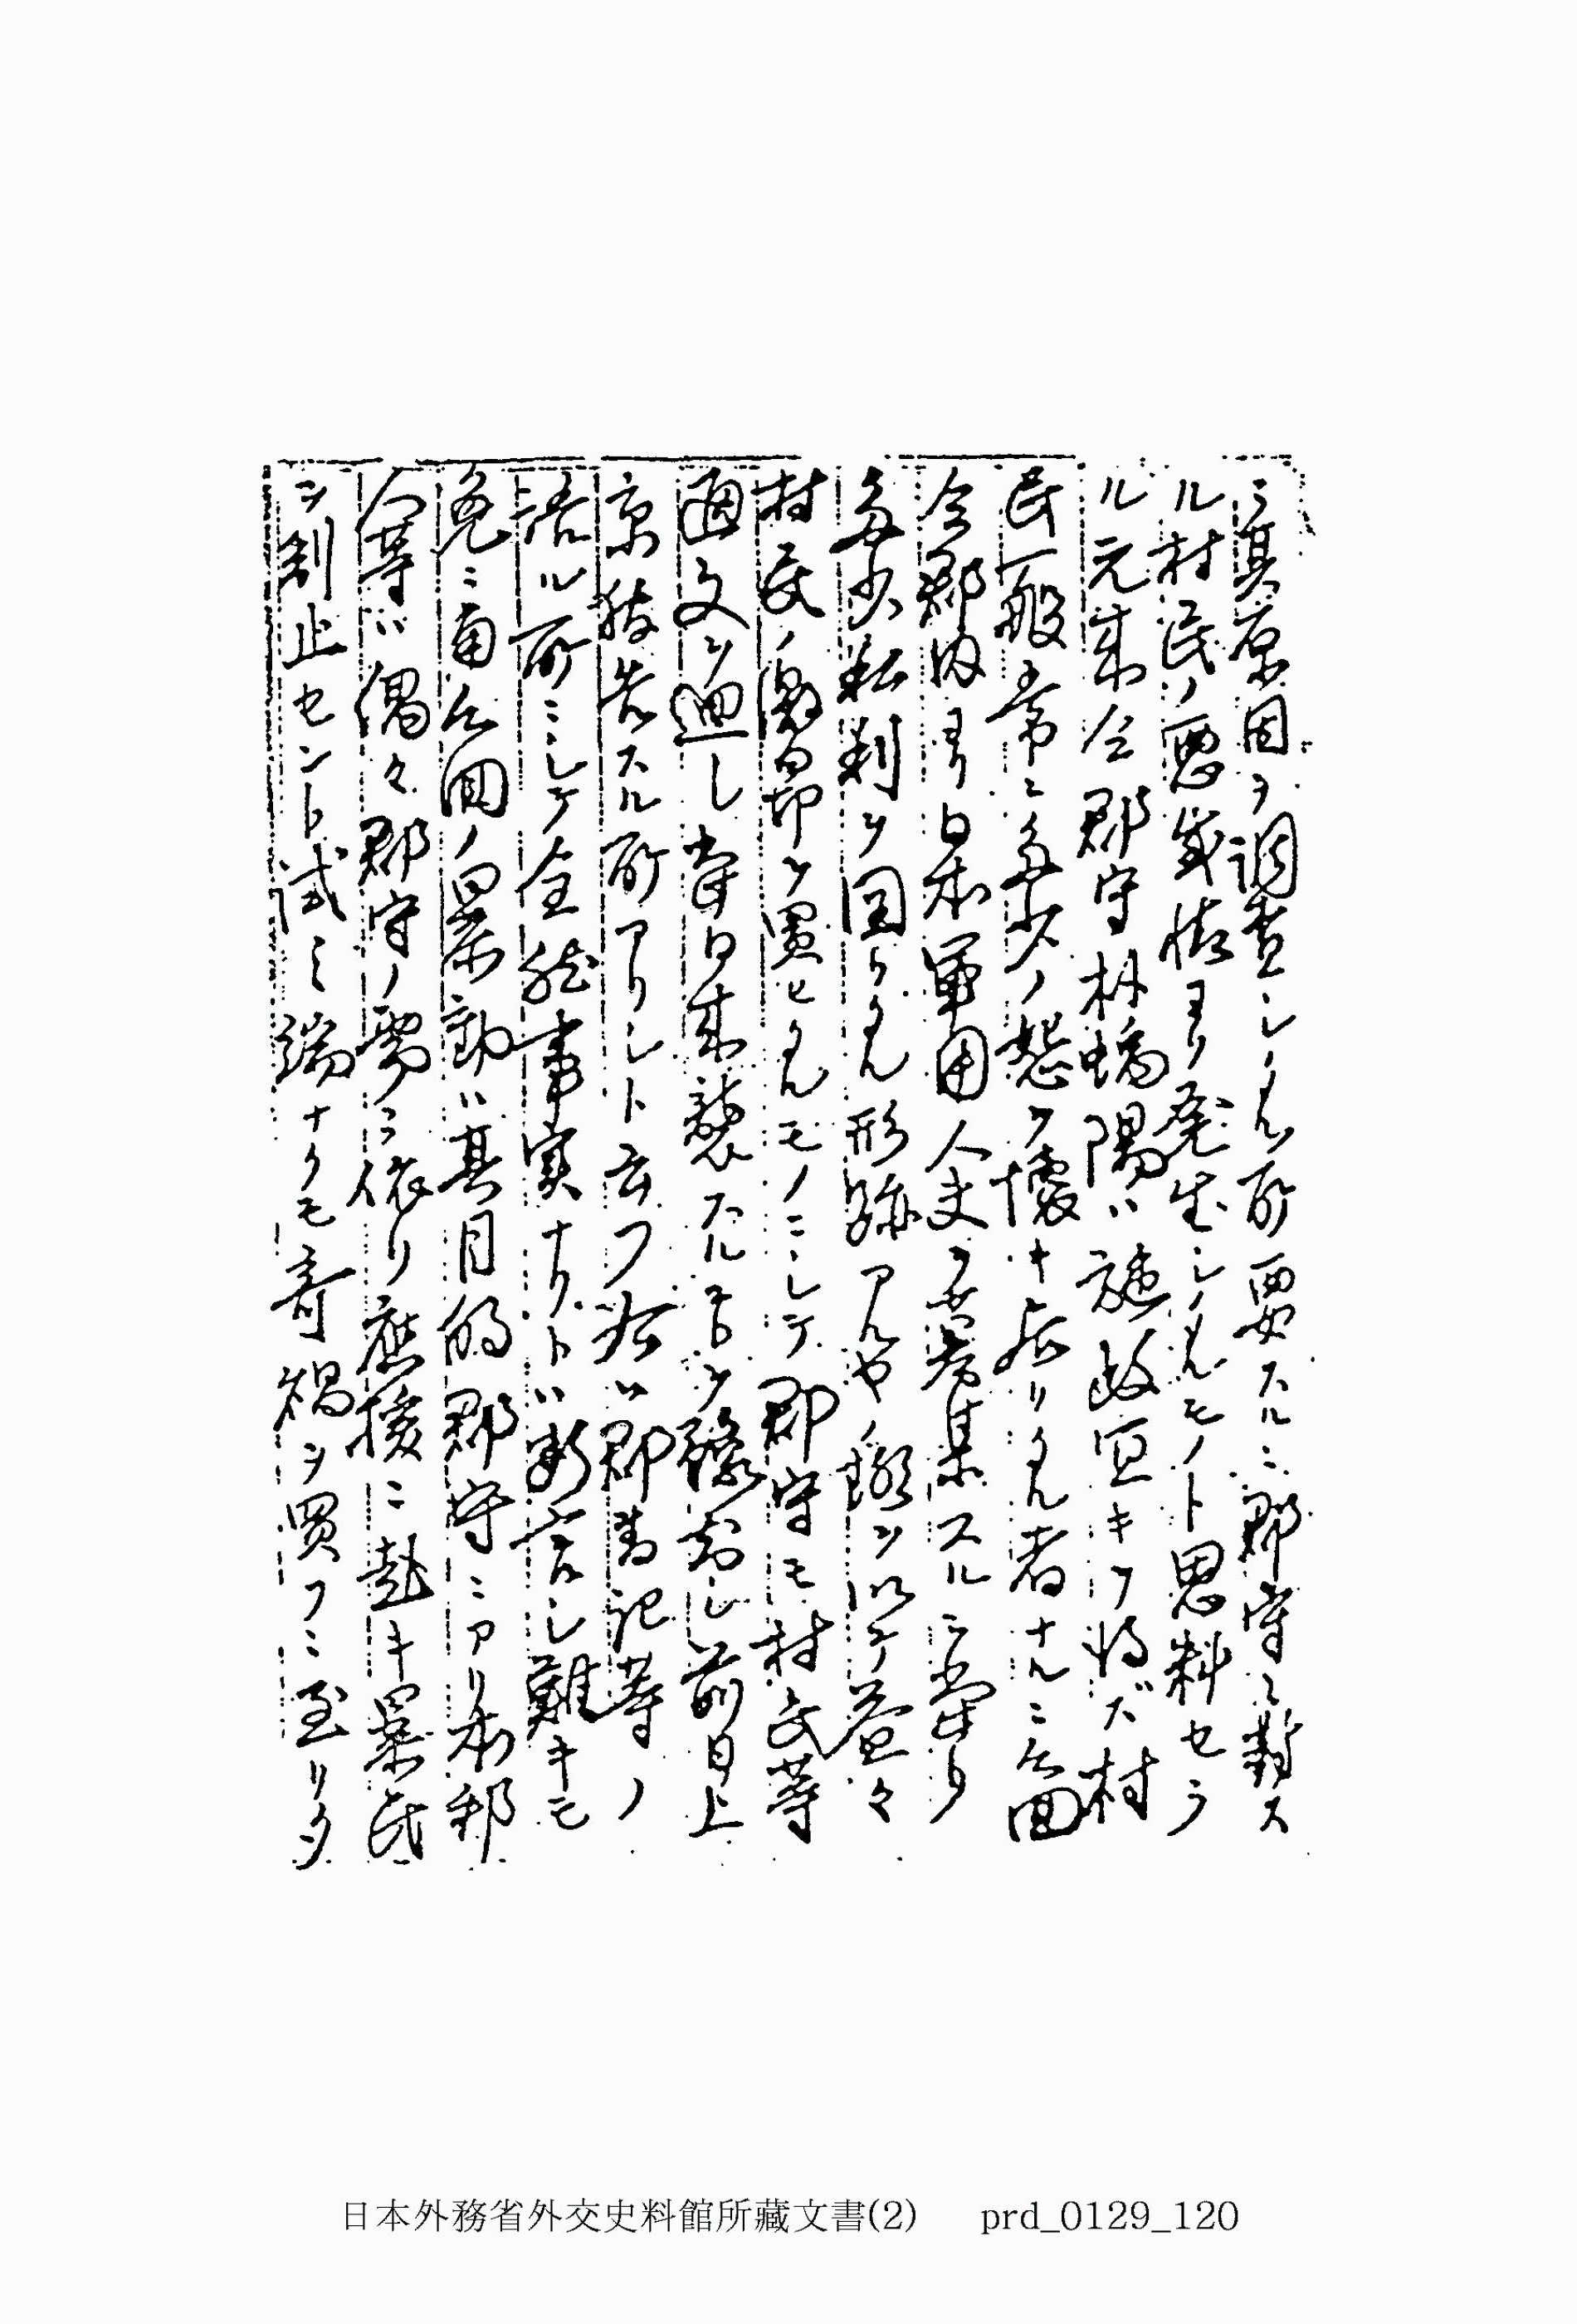 ニ其原因ヲ調査シタル所要スルニ郡守ニ對ス
ル村民ノ悪感情ヨリ発生シタルモノト思料セラ
ル元来仝郡守朴嵎陽ハ施政宜キヲ得ズ村
民一般常ニ多少ノ怨ヲ懐キ居リタル者ナルニ今回
仝郡内ヨリ日本軍用人夫ヲ募集スルニ当リ
多少私利ヲ図リタル形跡アルヤノ 疑ヲ以テ益々
村民ノ激昂ヲ買ヒタルモノニシテ郡守モ村民等
回文ヲ廻シ当日来襲スルコトヲ予知シ前日上
京 告スル所アリシト云フ右ハ郡書記等ノ
語ル所ニシテ全然事実ナリトハ断言シ難キモ
兎ニ角今回ノ暴動ハ其目的郡守ニアリ本邦
人等ハ偶々郡守ノ需ニ依リ応援ニ赴キ暴民
ヲ制止セント試ミ端ナクモ奇禍ヲ買フニ至リタ
日本外務省外交史料館所藏文書(2) prd_0129_120